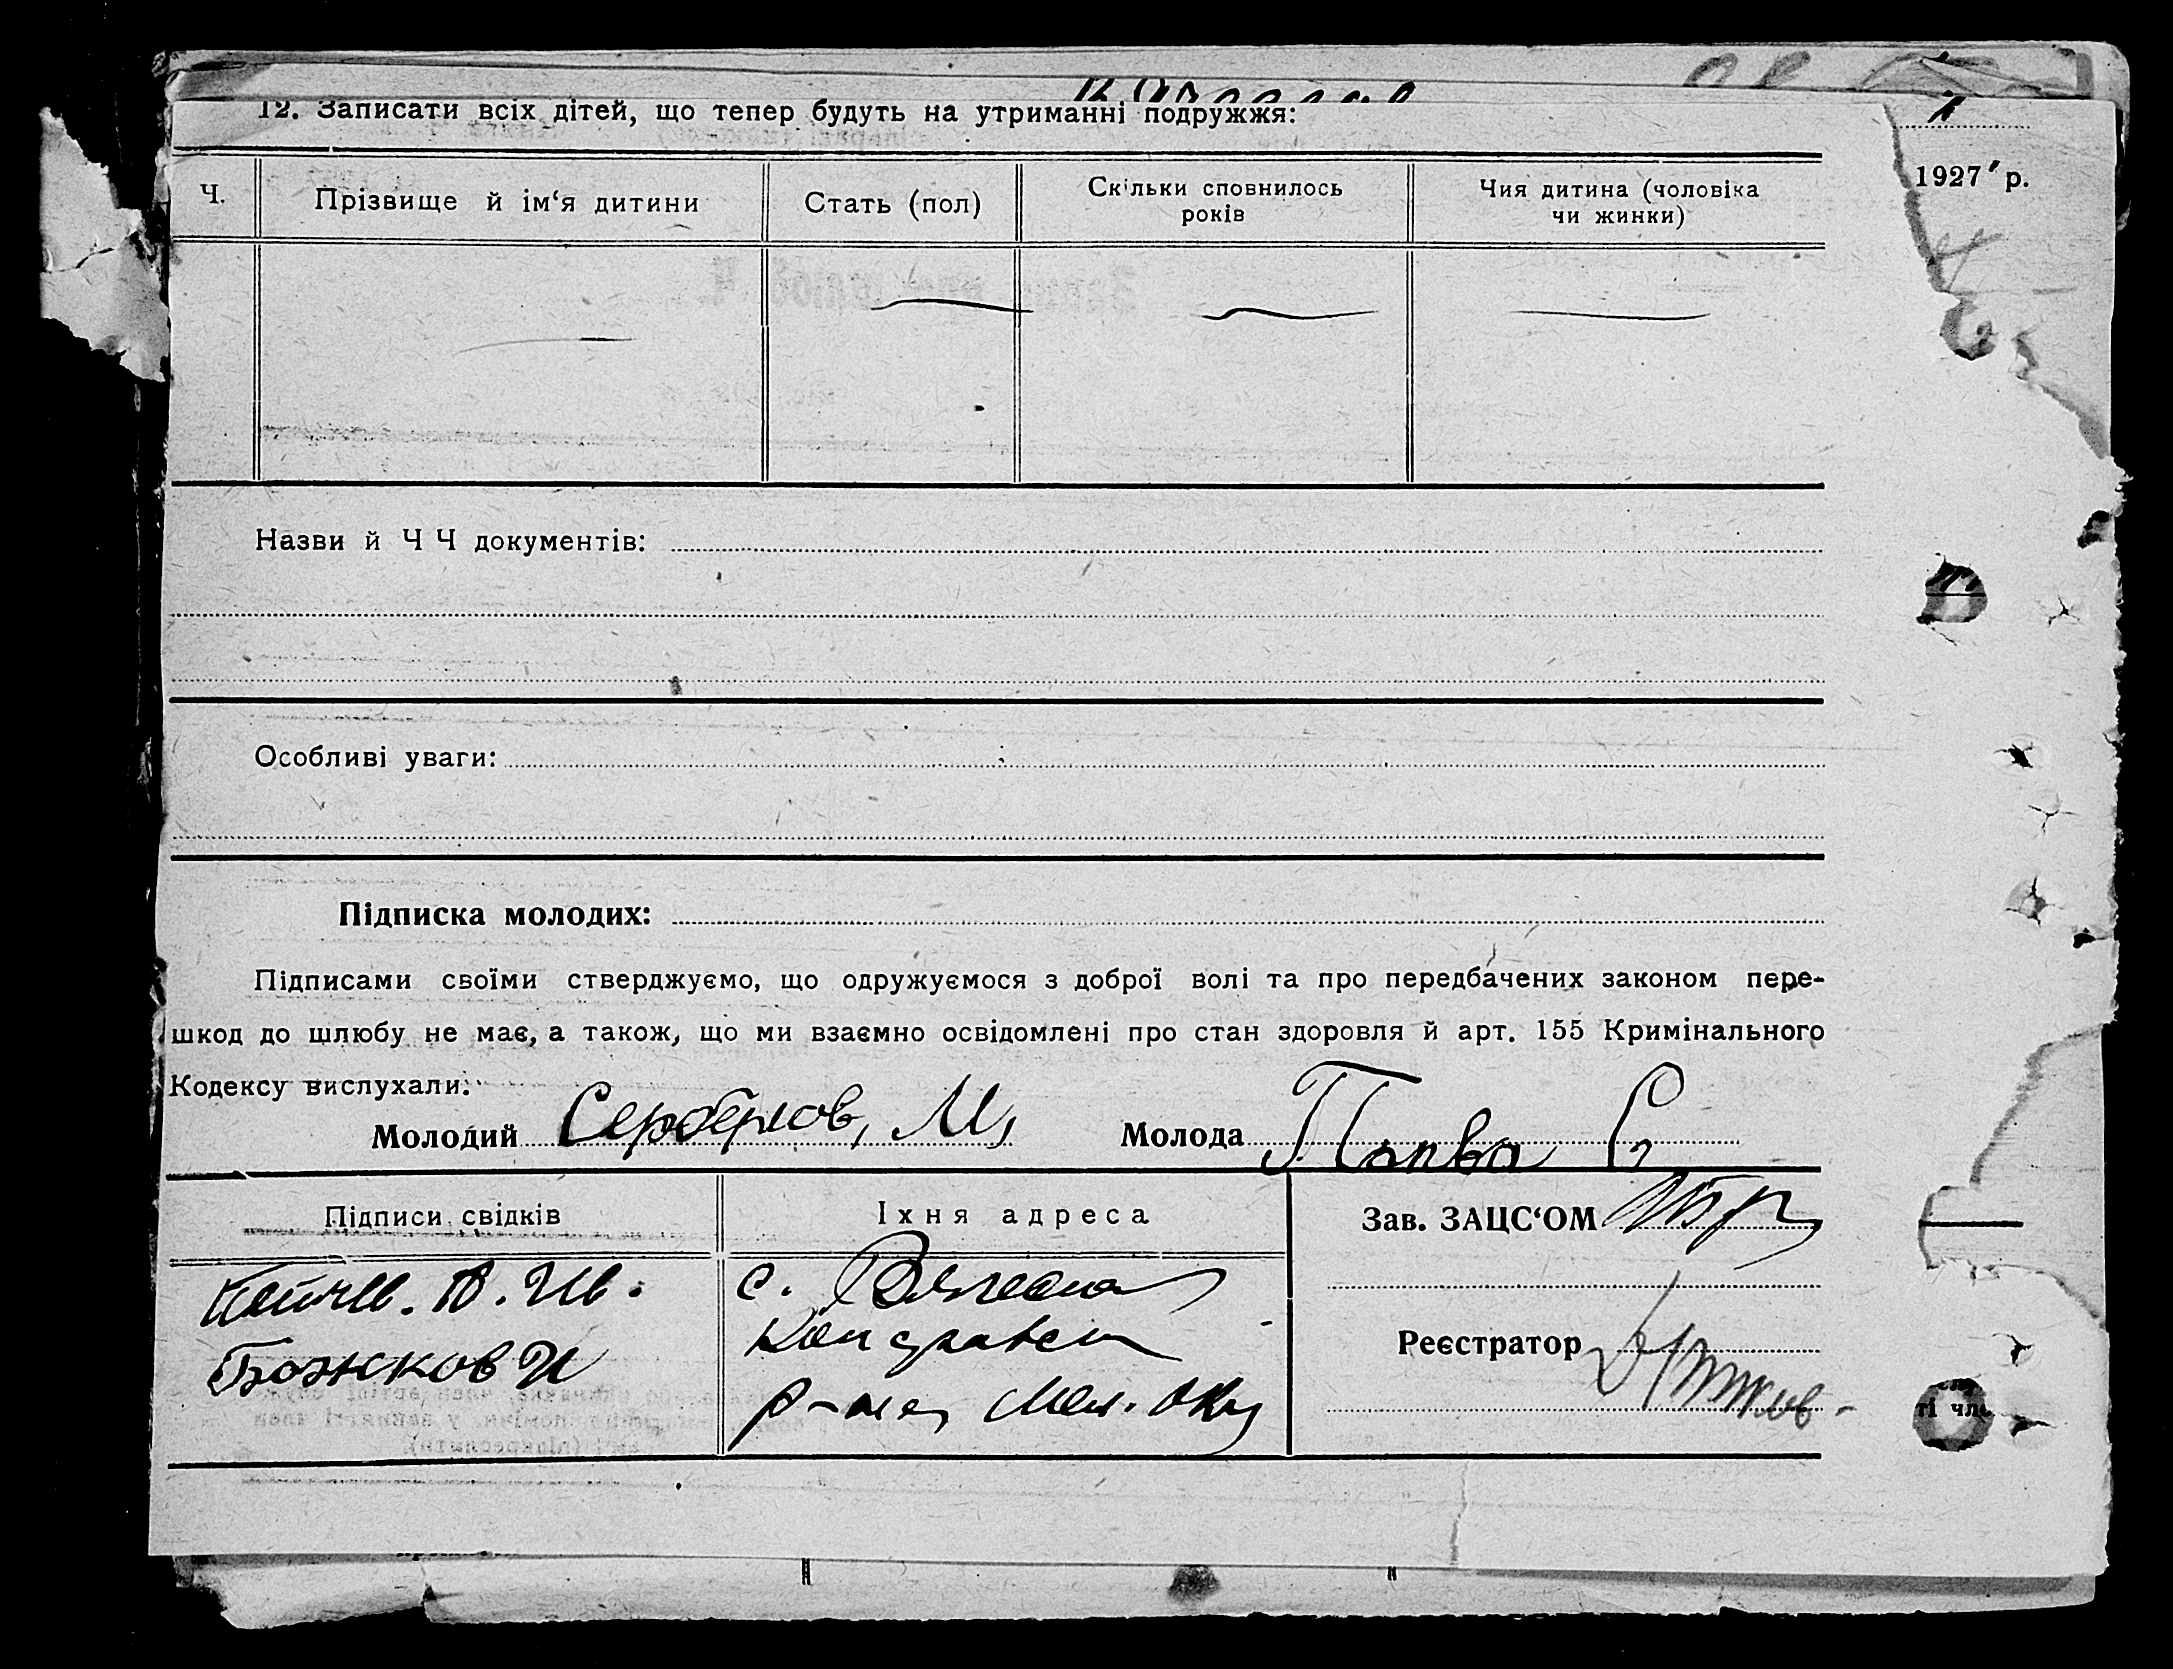 12. Записати всіх дітей, що тепер будуть на утриманні подружжя:
1927 р.
Ч.
Прізвище й ім‘я дитини
Стать (пол)
Скільки сповнилось
років
Чия дитина (чоловіка
чи жинки)
Назви й Ч Ч документів:
Особливі уваги:
Підписка молодих:
Підписами своїми стверджуємо, що одружуємося з доброї волі та про передбачених законом пере-
шкод до шлюбу не має, а також, що ми взаємно освідомлені про стан здоровля й арт. 155 Кримінального
Кодексу вислухали:
Молодий
М,
Молода
Підписи свідків
Їхня адреса
Зав. ЗАЦС‘ОМ
Божков И
с.
р-на, Мел. Окр
Реєстратор
ті чле